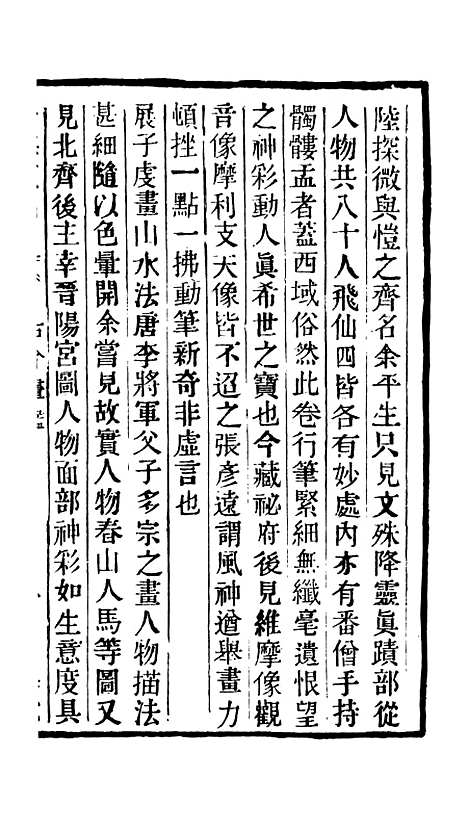 陸探微與愷之齊名余平生只見文殊降靈眞蹟部從
人物共八十人飛仙四皆各有妙處内亦有番僧手持
髑髏盂者葢西域俗然此卷行筆緊細無纖毫遺恨望
之神彩動人眞希世之寶也今藏祕府後見維摩像觀
音像摩利支天像皆不迨之張彥遠謂風神遒舉畫力
頓挫一點一拂動筆新奇非虛言也
展子虔畫山水法唐李將軍父子多宗之畫人物描法
甚細隨以色暈開余嘗見故實人物春山人馬等圖又
見北齊後主幸晉陽宮圖人物面部神彩如生意度具